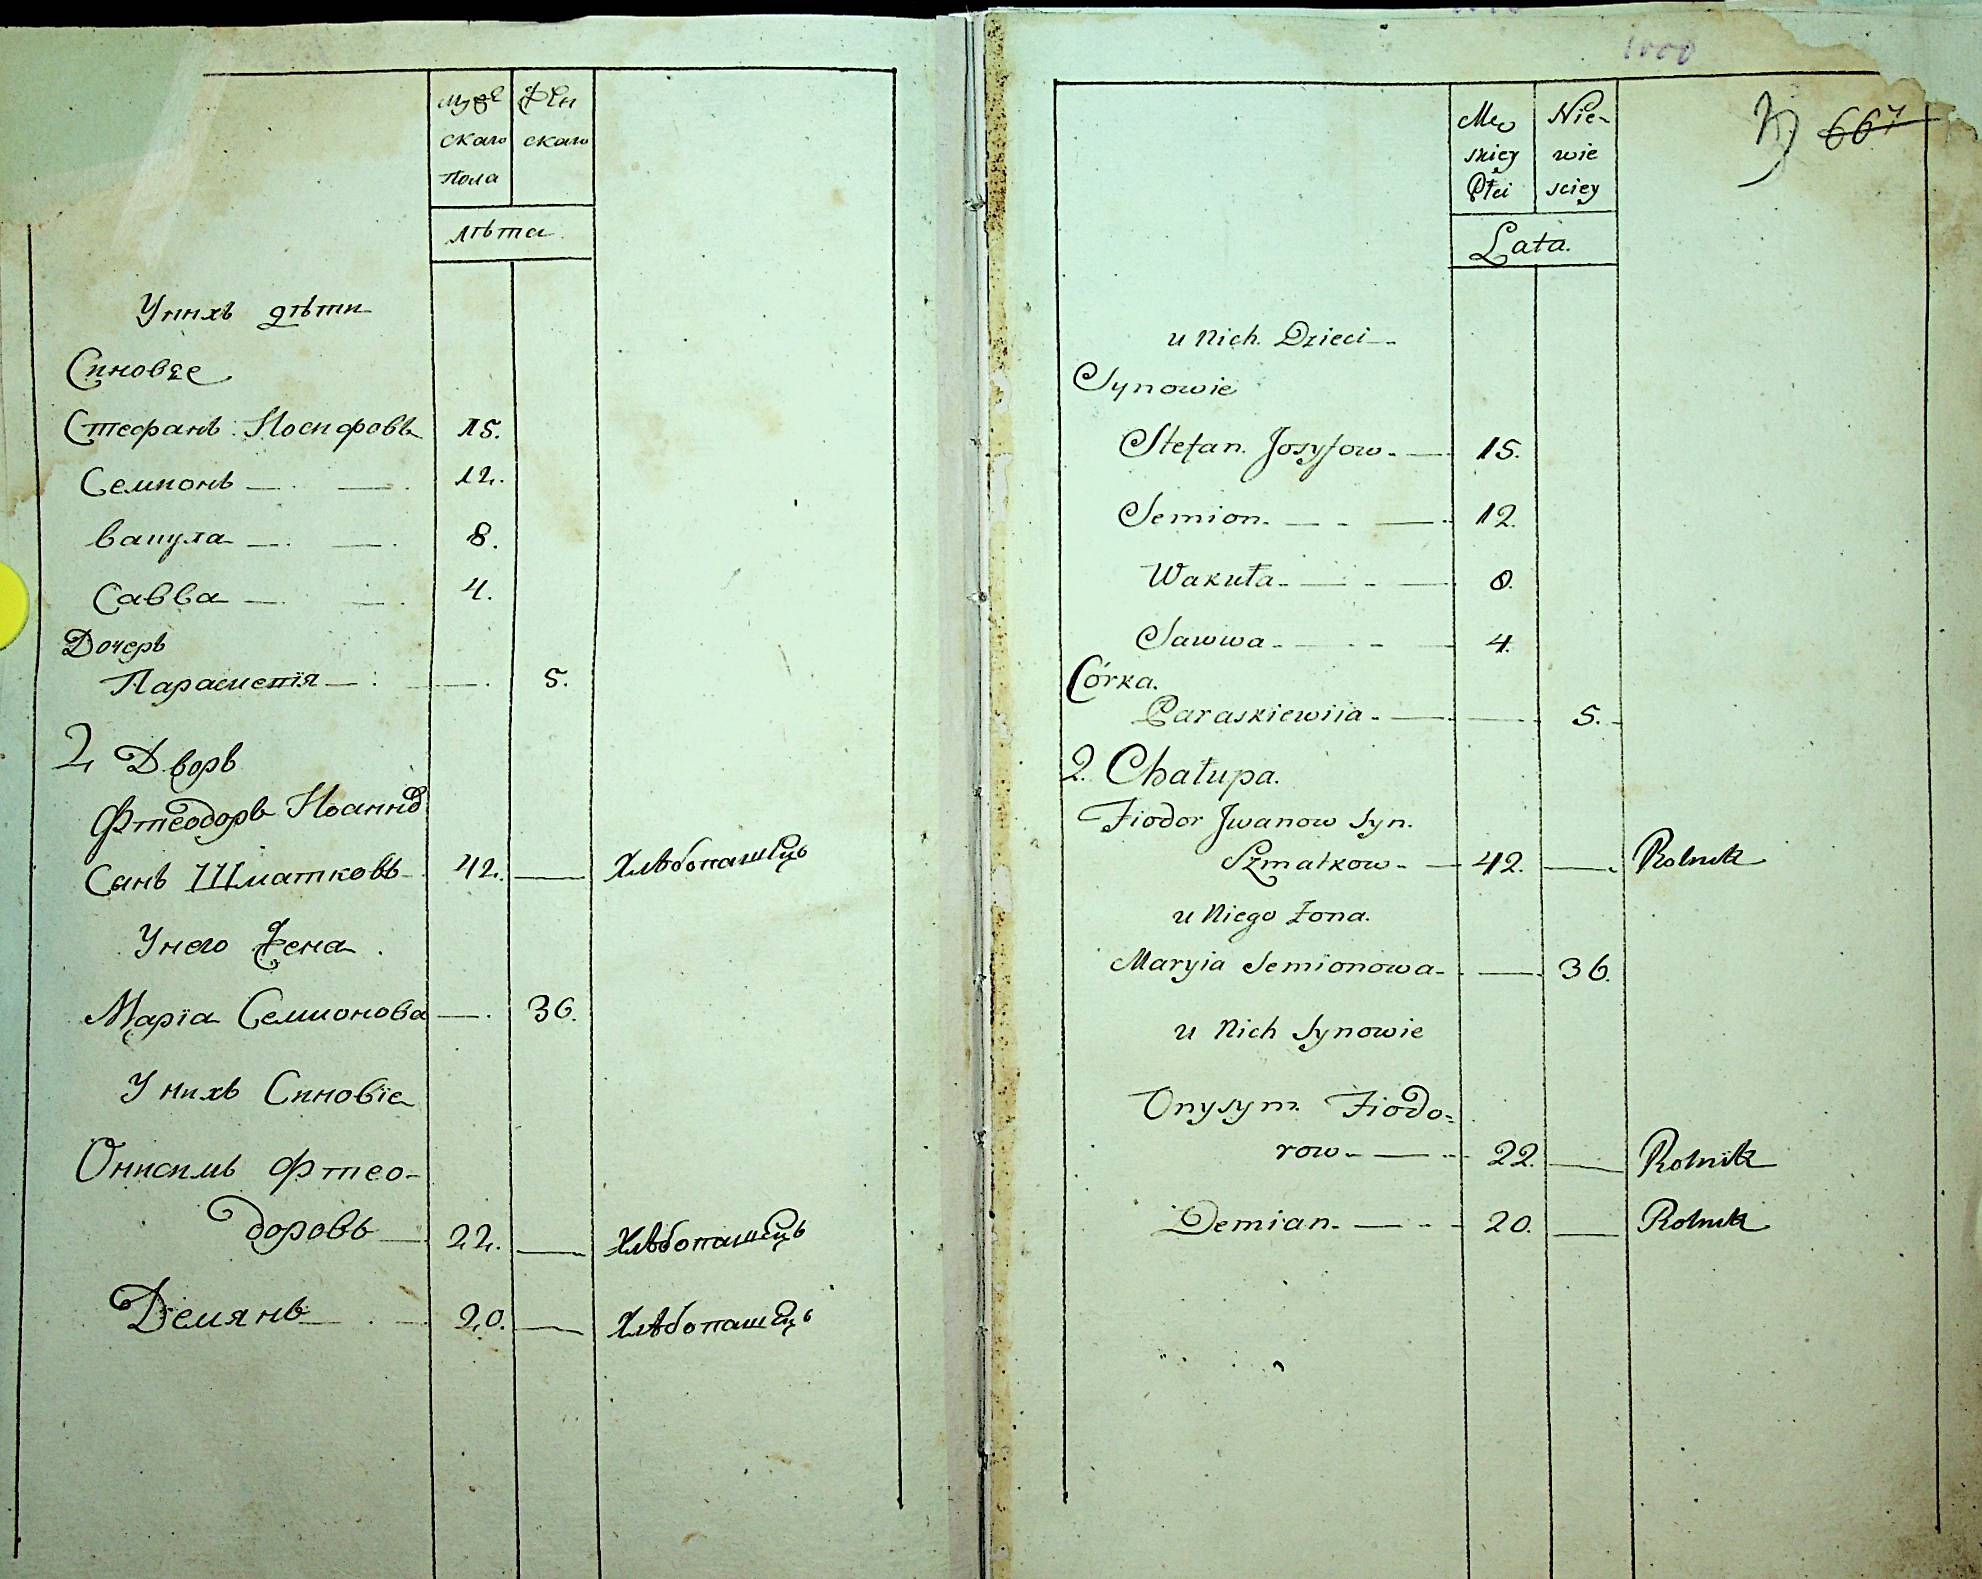 муже
скаго
пола
жен
скаго
лѣта
У нихъ дѣти
Синовее
Стефанъ Иосифовъ 15.
Семионъ 12.
Вакула 8.
Савва 4.
Дочерь
Параскевія 5.
2 Дворъ
Фтеодоръ Иоаннов
Сынъ Шматковъ 42. Хлѣбопашецъ
У него жена
Марїа Семионова 36.
У нихъ Синовїе
Онисимъ Фтео-
доровъ 22. Хлѣбопашецъ
Демянъ 20. Хлѣбопашецъ
1000
667
Męs
skiey
Płci
Nie-
wie
sciey
Lata.
u Nich Dzieci
Synowie
Stefan Josyfow 15.
Semion 12.
Wakuła 8.
Sawwa 4.
Córka.
Paraskiewiia 5.
2. Chałupa.
Fiodor Jwanow Syn.
Szmatkow 42. Rolnik
u Niego Żona.
Maryia Semionowa 36.
u Nich Synowie
Onysym Fiodo-
row 22. Rolnik
Demian 20. Rolnik